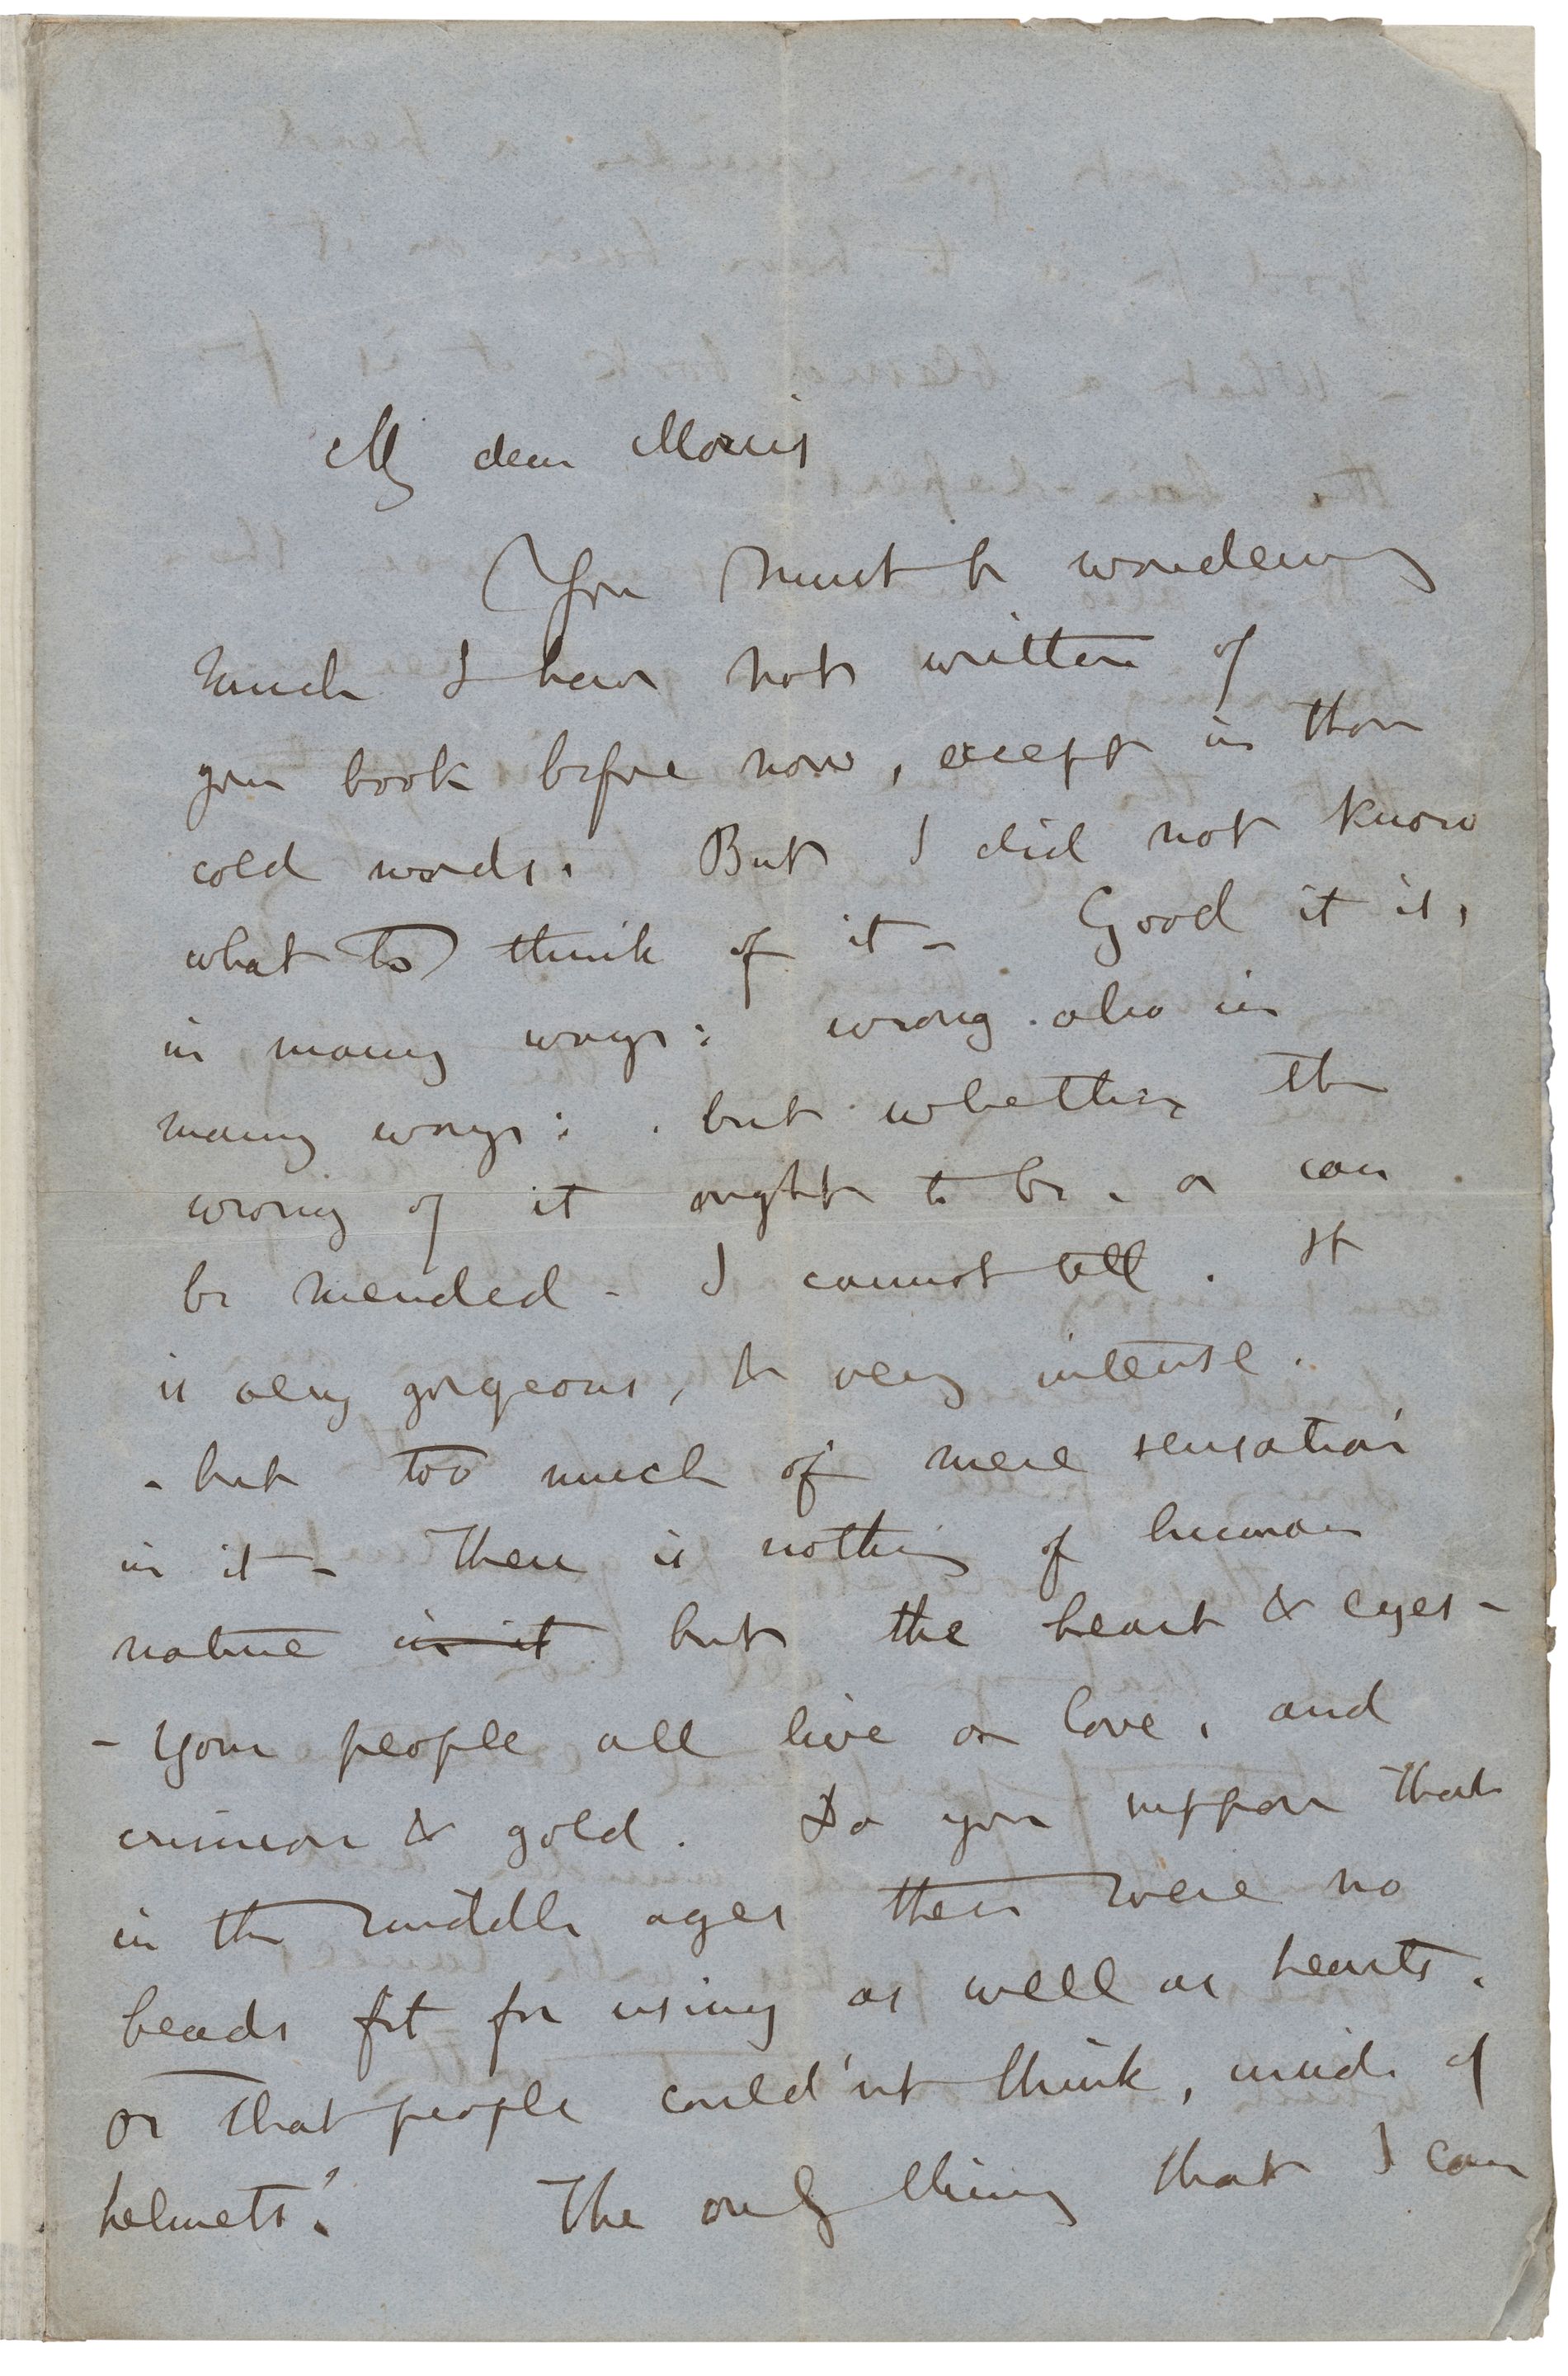 My dear Morris
You must be wondering
much I have not written of
your book before now, except in those
cold words. But I did not know
what to think of it - Good it is,
in many ways: wrong also in
many ways: but whether the
wrong of it ought to be, or can
be mended - I cannot tell. It
is very gorgeous, & very intense.
- but too much of mere sensation
in it - There is nothing of human
nature in it but the heart & eyes -
- Your people all live on love, and
crimson & gold. Do you suppose that
in the middle ages there were no
heads fit for using as well as hearts.
or that people could'nt think, inside of
helmets! The only thing that I can